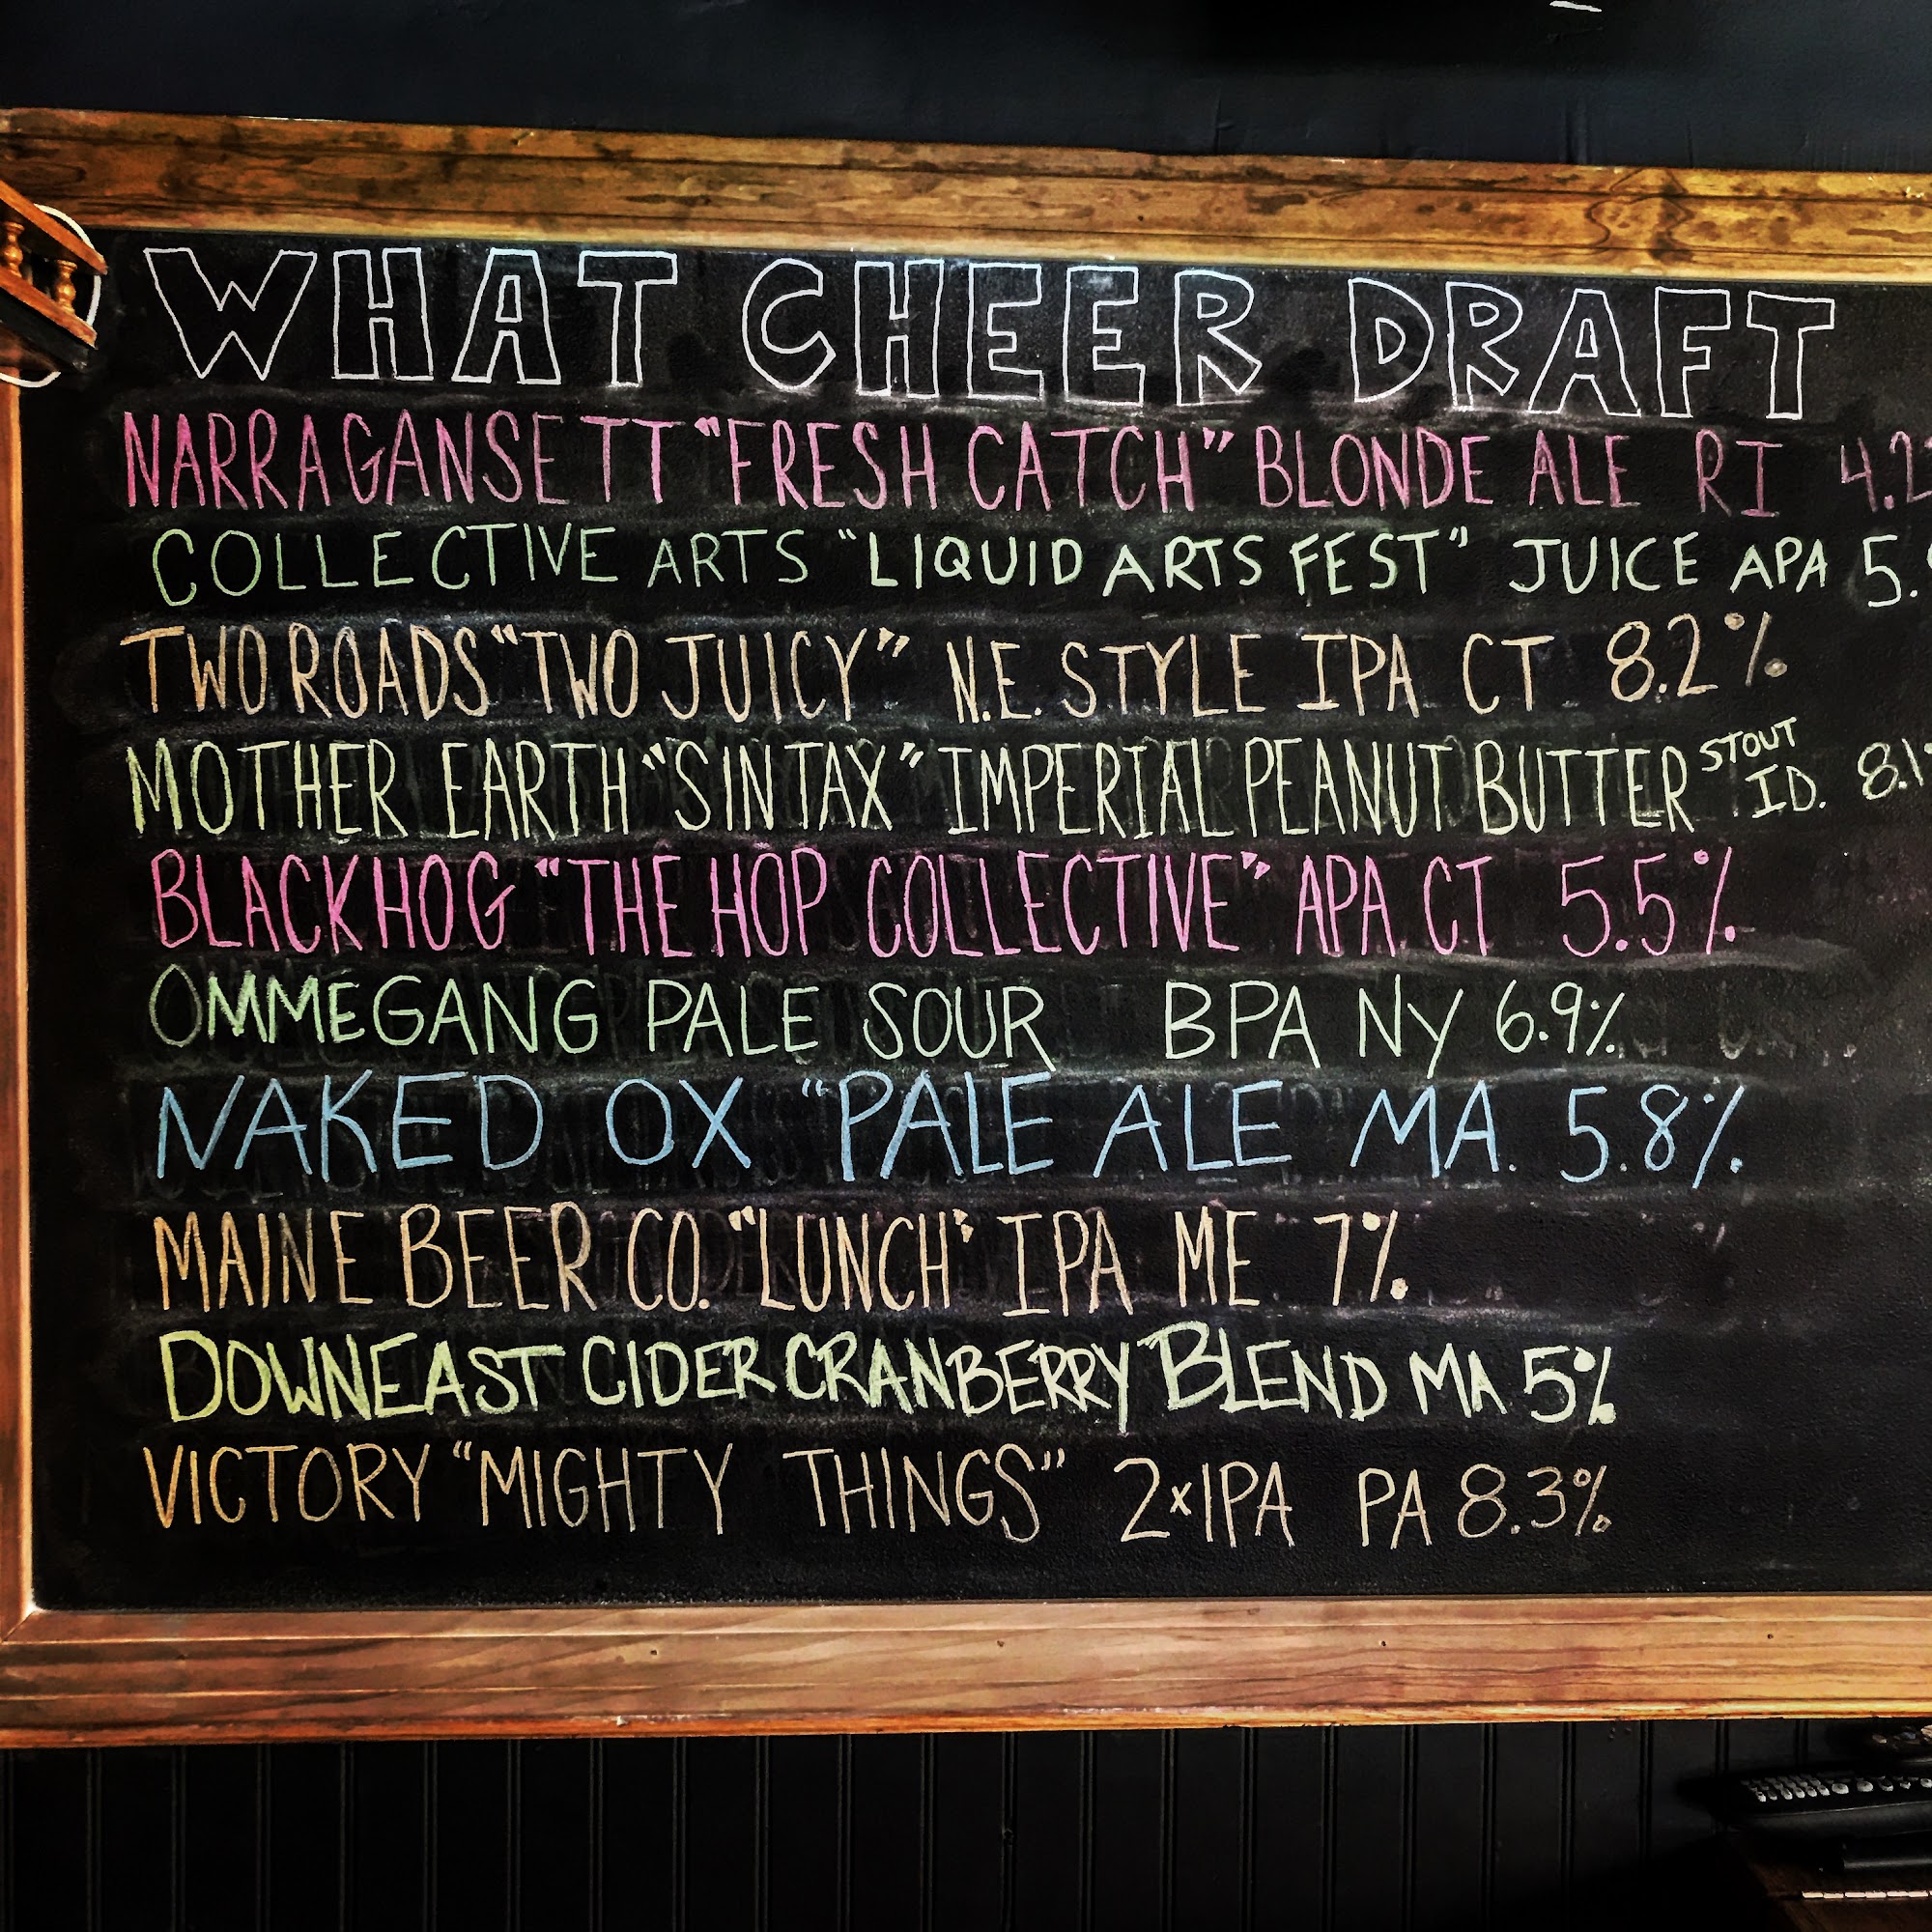 WHAT CHEER DRAFT
NARRAGANSETT "FRESH CATCH" BLONDE ALE RI 4.2
COLLECTIVE ARTS "LIQUID ARTS FEST" JUICE APA 5.
TWO ROADS "TWO JUICY" N.E. STYLE IPA CT 8.2%
MOTHER EARTH "SINTAX" IMPERIAL PEANUT BUTTER STOUT ID. 8.1
BLACK HOG "THE HOP COLLECTIVE" APA CT 5.5%
OMMEGANG PALE SOUR BPA NY 6.9%
NAKED OX "PALE ALE MA. 5.8%
MAINE BEER CO. "LUNCH" IPA ME 7%
DOWNEAST CIDER CRANBERRY BLEND MA 5%
VICTORY "MIGHTY THINGS" 2xIPA PA 8.3%